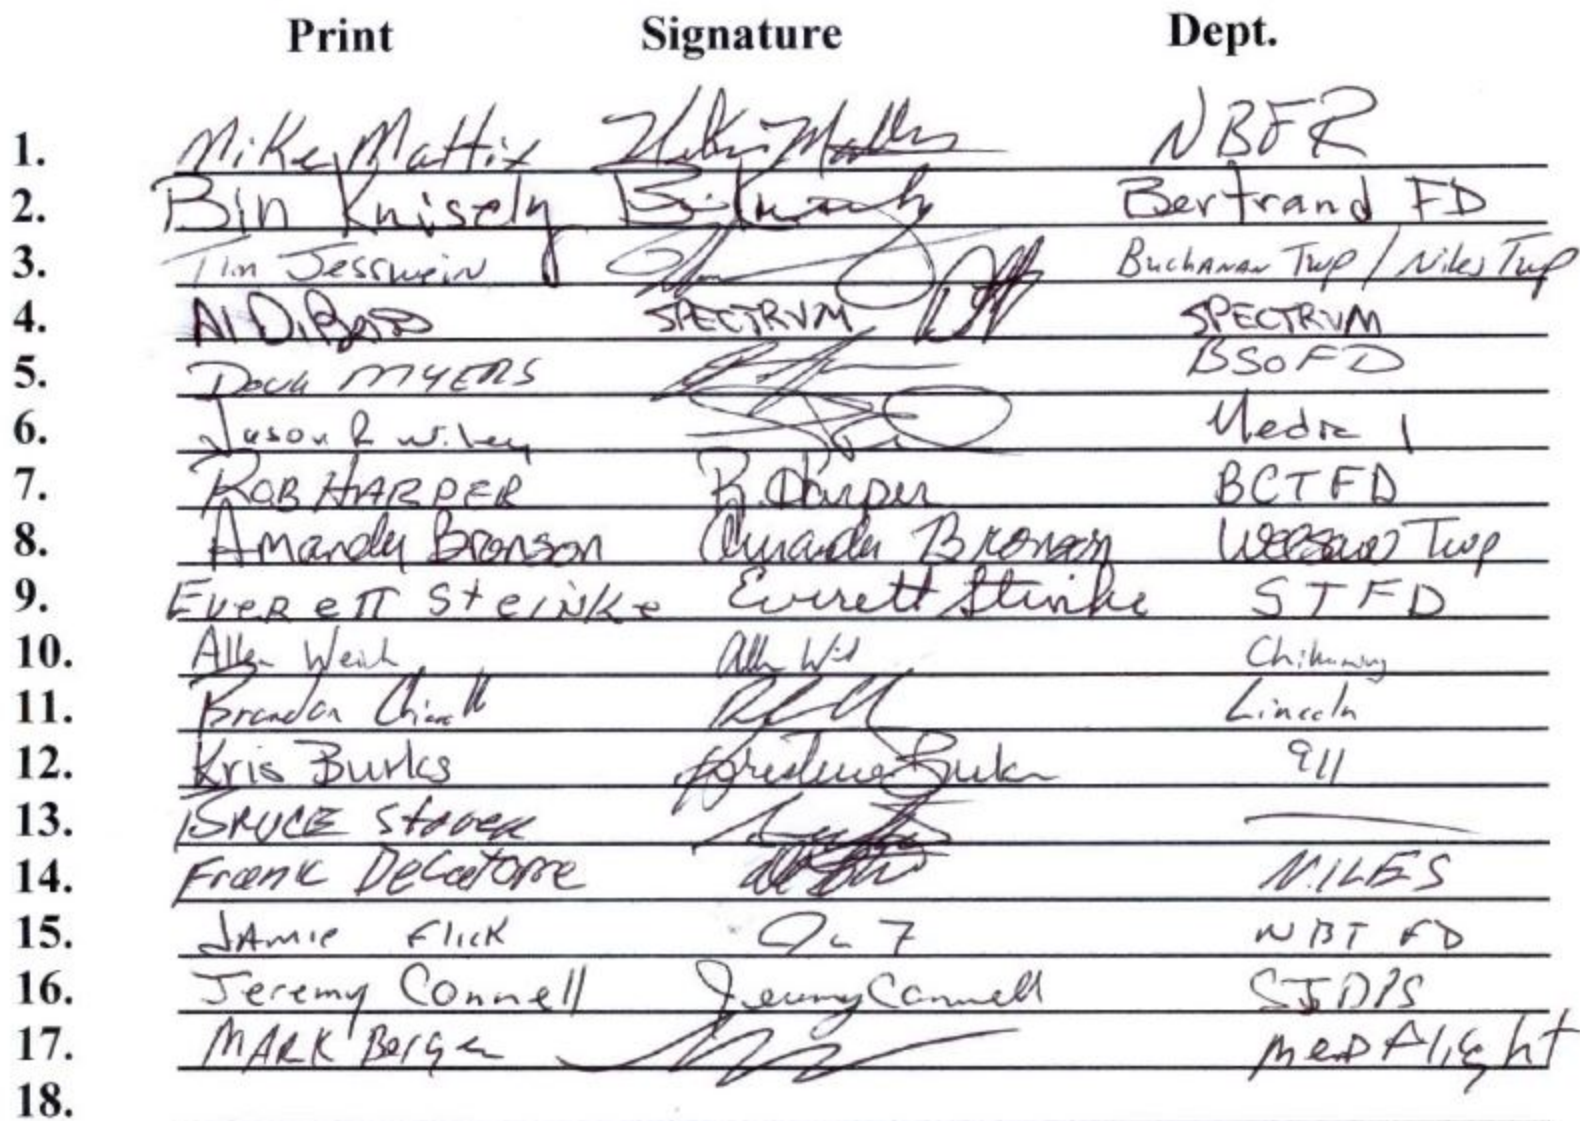 Print Signature Dept.
1. Mike Mattix NBFR
2. Bin Knisely Bertrand FD
3. Tim Jesswein Buchanan Twp / Niles Twp
4. Al SPECTRUM SPECTRUM
5. Doug MYERS BSOFD
6. Jason R Wiley Medic 1
7. ROB HARPER R. Harper BCTFD
8. Amanda Bronson Amanda Bronson Weesaw Twp
9. EVERETT SteiNKe Everett Steinke STFD
10. Allen Chikaming
11. Brandon Lincoln
12. Kris Burks 911
13. BRUCE Stover
14. Frank NILES
15. JAmie Flick NBT FD
16. Jeremy Connell Jeremy Connell SJDPS
17. MARK Berger MedFlight
18.